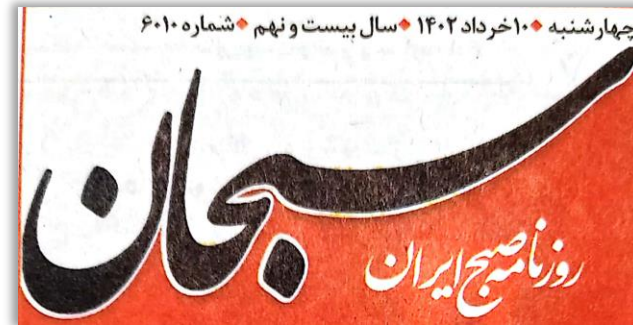 چهارشنبه ◆ ۱۰خرداد ۱۴۰۲ ◆ سال بیست و نهم ◆ شماره ۶۰۱۰
سبحان
روزنامه صبح ایران